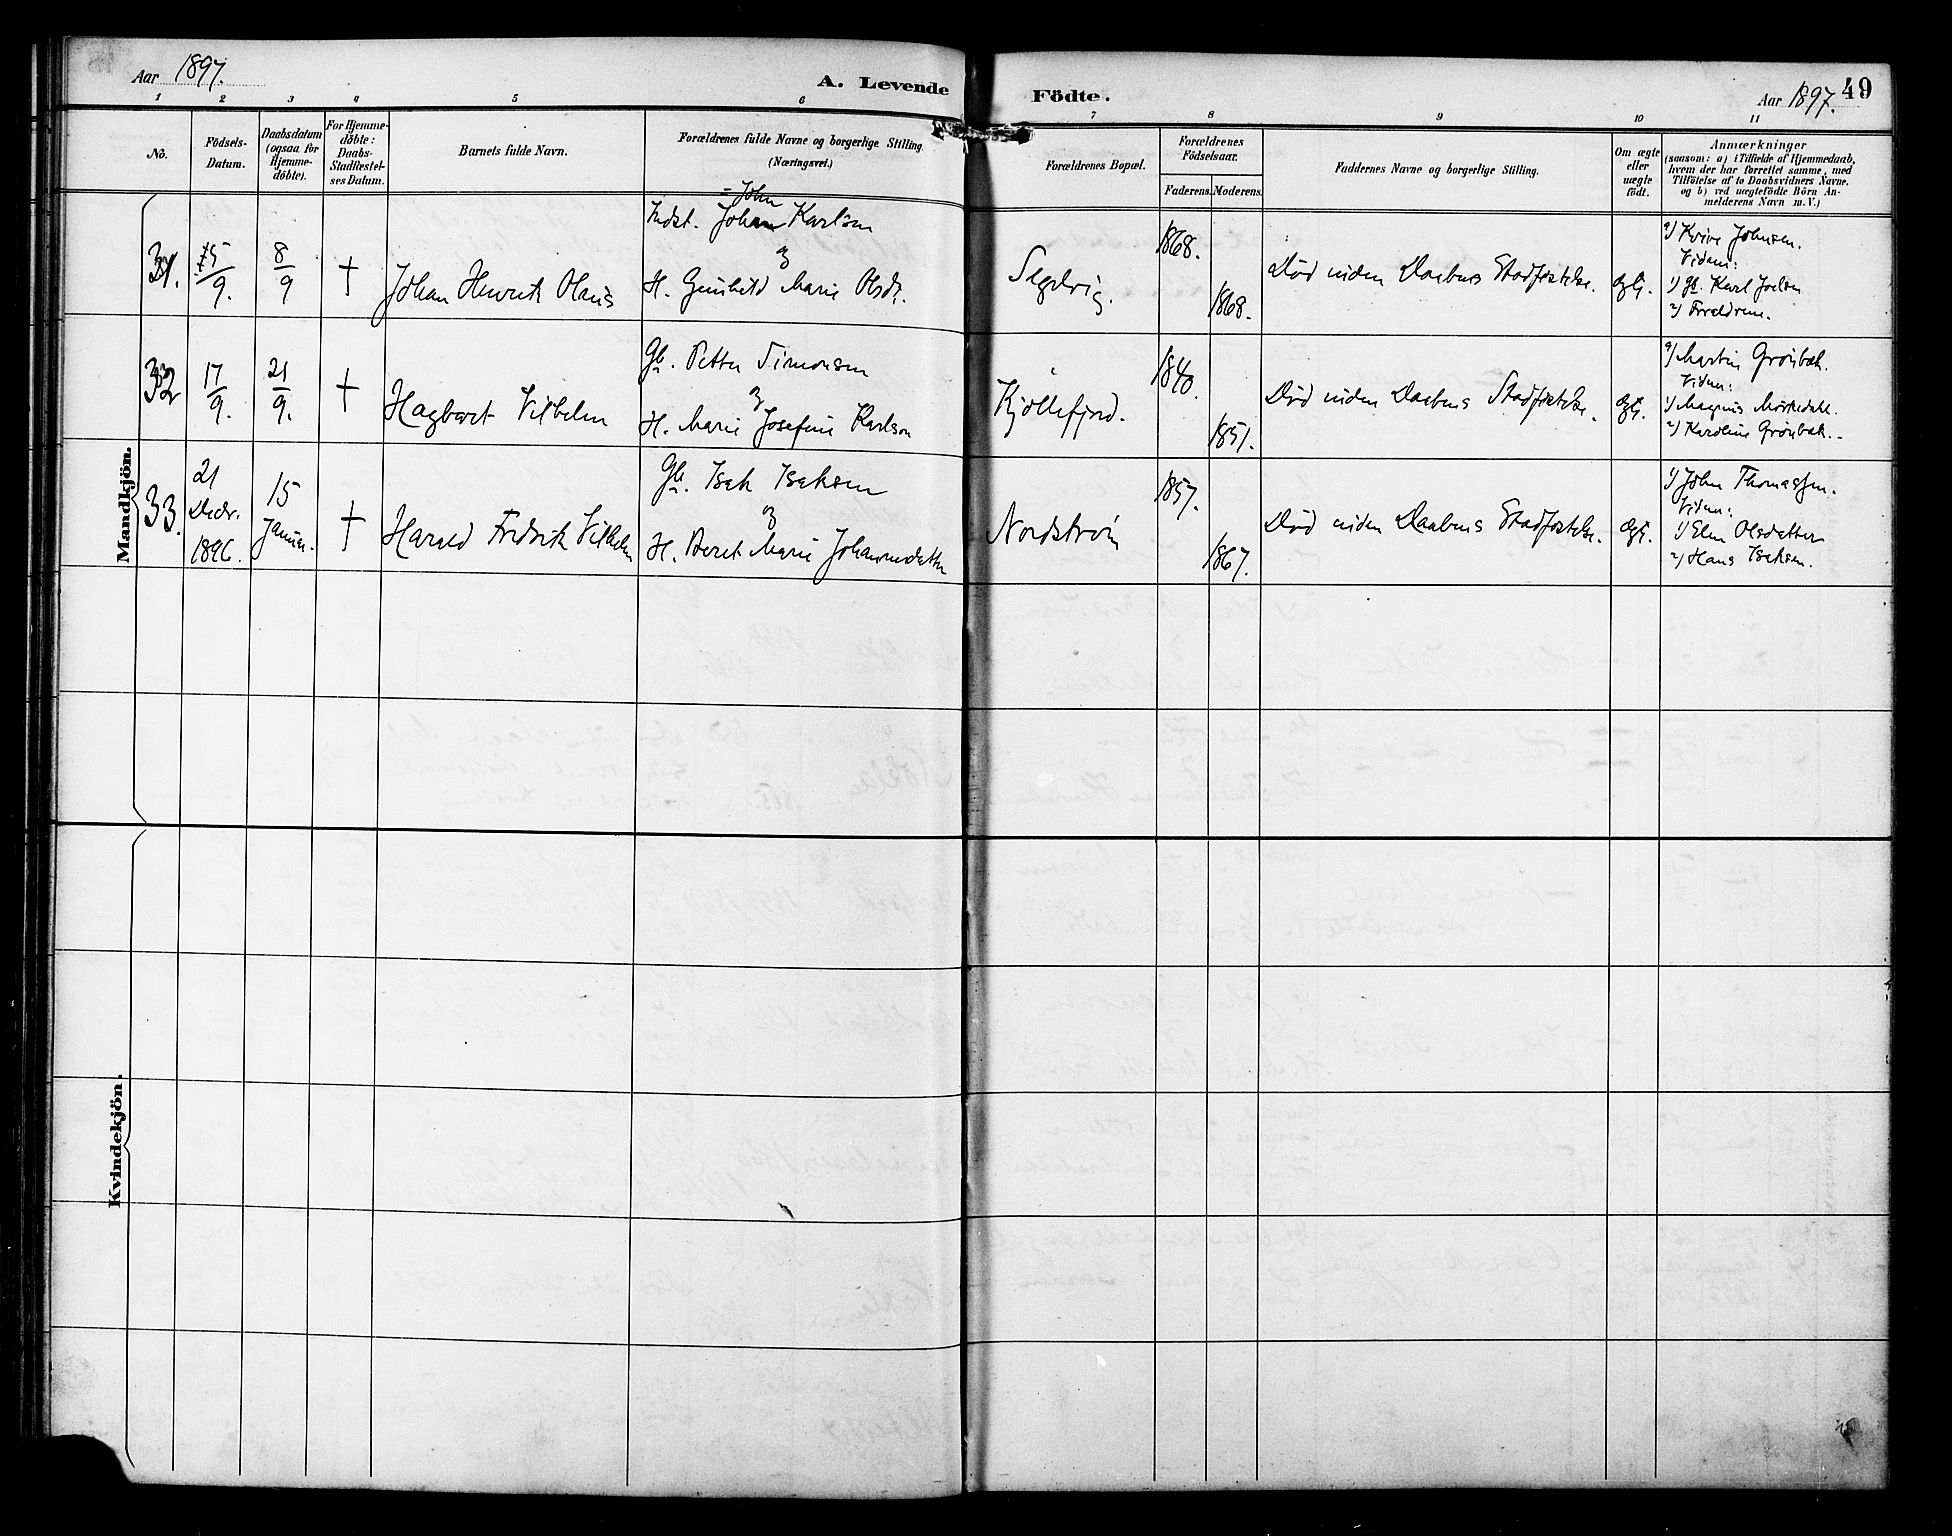 Aar 1897.
A. Levende
Födte.
Aar 1897.
49
1 2 3 4 5 6 7 8 9 10 11
No.
Födsels-
Datum.
Daabsdatum
(ogsaa for
Hjemme-
döbte).
For Hjemme-
döbte:
Daabs-
Stadfæstel-
ses Datum.
Barnets fulde Navn.
Forældrenes fulde Navne og borgerlige Stilling.
(Næringsvei.)
Forældrenes Bopæl.
Forældrenes
Födselsaar.
Faderens. Moderens.
Faddernes Navne og borgerlige Stilling.
Om ægte
eller
uægte
födt.
Anmærkninger
(saasom: a) i Tilfælde af Hjemmedaab,
hvem der har forrettet samme, med
Tilföielse af to Daabsvidners Navne,
og b) ved uægtefödte Börn An-
melderens Navn m. V.)
Mandkjön.
31.
5/9.
8/9
†
Johan Henrik Olaus
John
Indst. Johan Karlsen
og
H. Gunhild Marie Olsdt.
1868.
1868.
Død inden Daabens Stadfæstelse.
ægte.
Johnsen.
Vidner:
1) Gb. Karl
2) Forældrene.
32
17/9.
21/9.
†
Hagbart Vilhelm
Gb. Petter Simonsen
og
H. Marie Josefine Karlson
Kjøllefjord.
1840.
1851.
Død inden Daabens Stadfæstelse.
ægte.
a) Martin Grønbæk.
Vidner:
1) Magnus
2) Karoline Grønbæk.
33.
21
Decbr.
1896.
15
Januar.
†
Harald Fredrik Vilhelm
Gb. Isak Isaksen
og
H. Beret Marie Johannesdatter
Nordstrøm
1857.
1867.
Død inden Daabens Stadfæstelse.
ægte.
1) John Thomassen.
Vidner:
1) Elen Olsdatter
2) Hans Isaksen.
Kvindekjön.